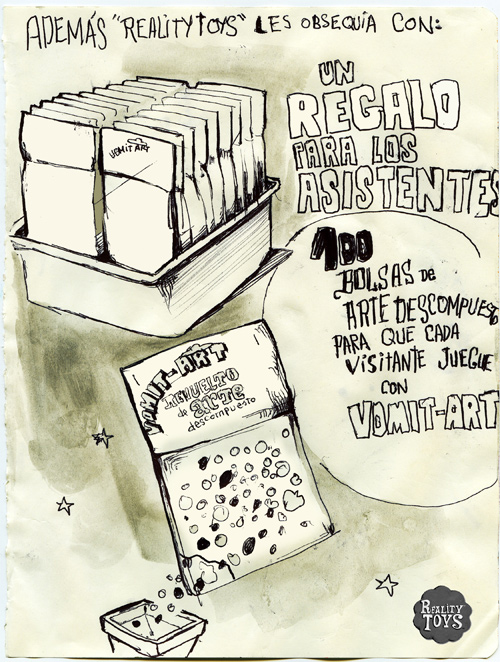 ADEMÁS "REALITYTOYS" LES OBSEQUÍA CON:
UN
REGALO
PARA LOS
ASISTENTES
100
BOLSAS DE
ARTE DESCOMPUESTO
PARA QUE CADA
VISITANTE JUEGUE
CON
VOMIT-ART
VOMIT ART
VOMIT-ART
REVUELTO
de arte
descompuesto
REALITY
TOYS